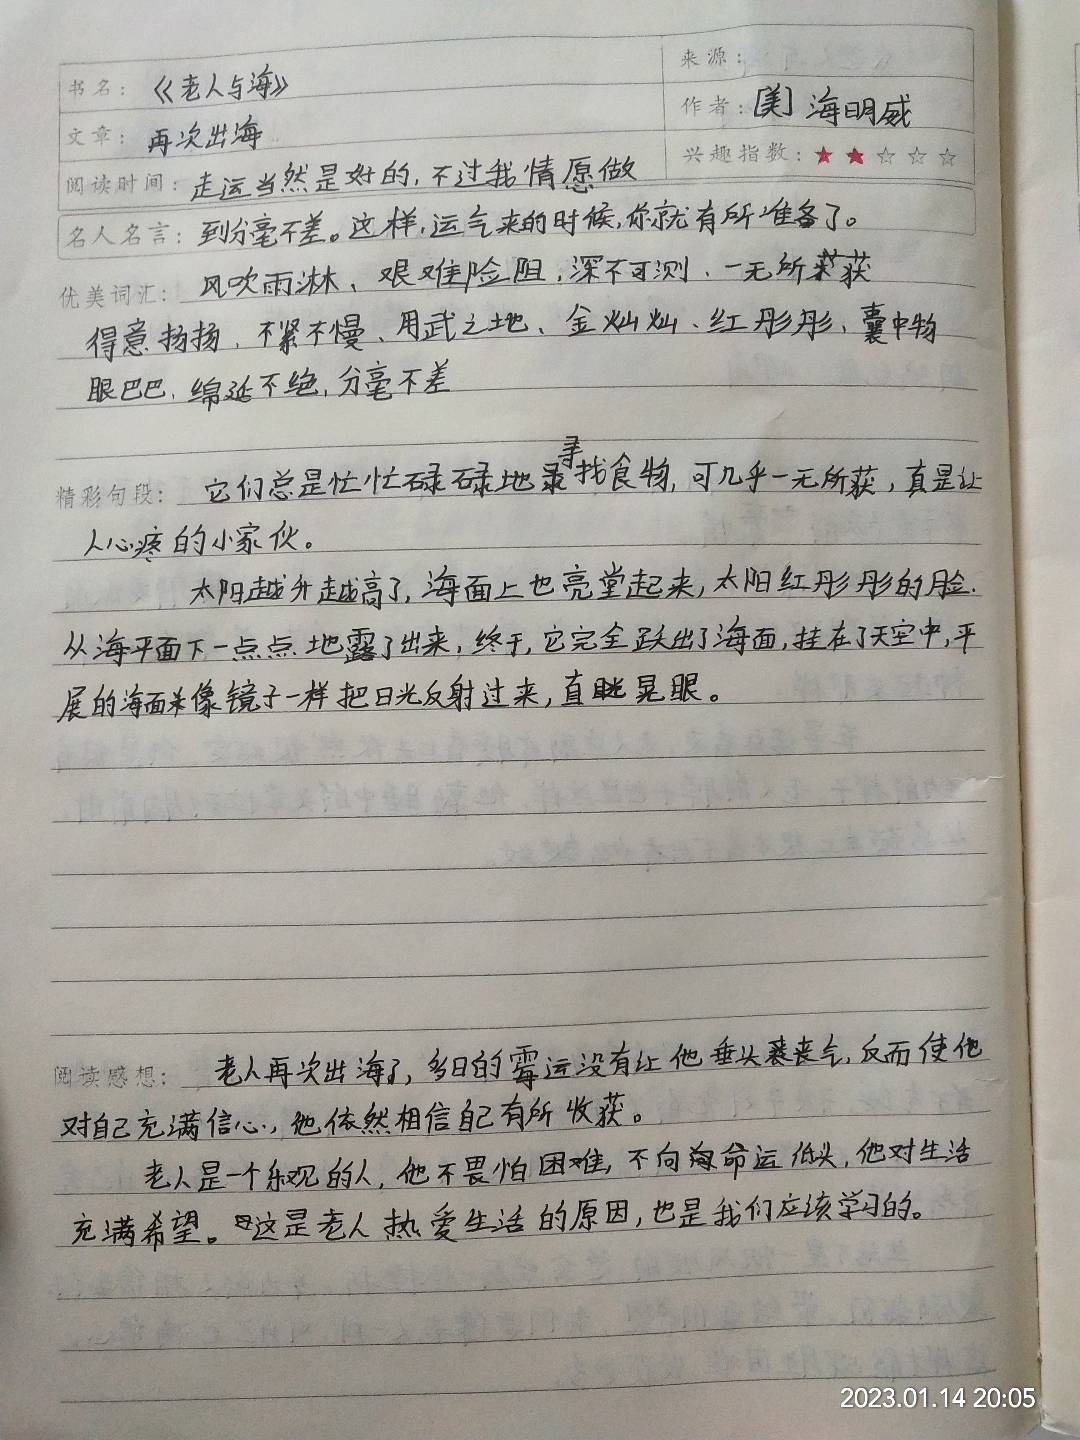 书名：《老人与海》
来源：
文章：再次出海
作者：[美] 海明威
阅读时间：走运当然是好的，不过我情愿做
兴趣指数：★★☆☆☆
名人名言：到分毫不差。这样，运气来的时候，你就有所准备了。
优美词汇：风吹雨淋、艰难险阻、深不可测、一无所获
得意扬扬、不紧不慢、用武之地、金灿灿、红彤彤、囊中物
眼巴巴、绵延不绝、分毫不差
精彩句段：它们总是忙忙碌碌地寻找食物，可几乎一无所获，真是让
人心疼的小家伙。
太阳越升越高了，海面上也亮堂起来，太阳红彤彤的脸．
从海平面下一点点地露了出来，终于，它完全跃出了海面，挂在了天空中，平
展的海面像镜子一样把日光反射过来，直晃眼。
阅读感想：老人再次出海了，多日的霉运没有让他垂头丧气，反而使他
对自己充满信心，他依然相信自己有所收获。
老人是一个乐观的人，他不畏怕困难，不向命运低头，他对生活
充满希望。这是老人热爱生活的原因，也是我们应该学习的。
2023.01.14 20:05